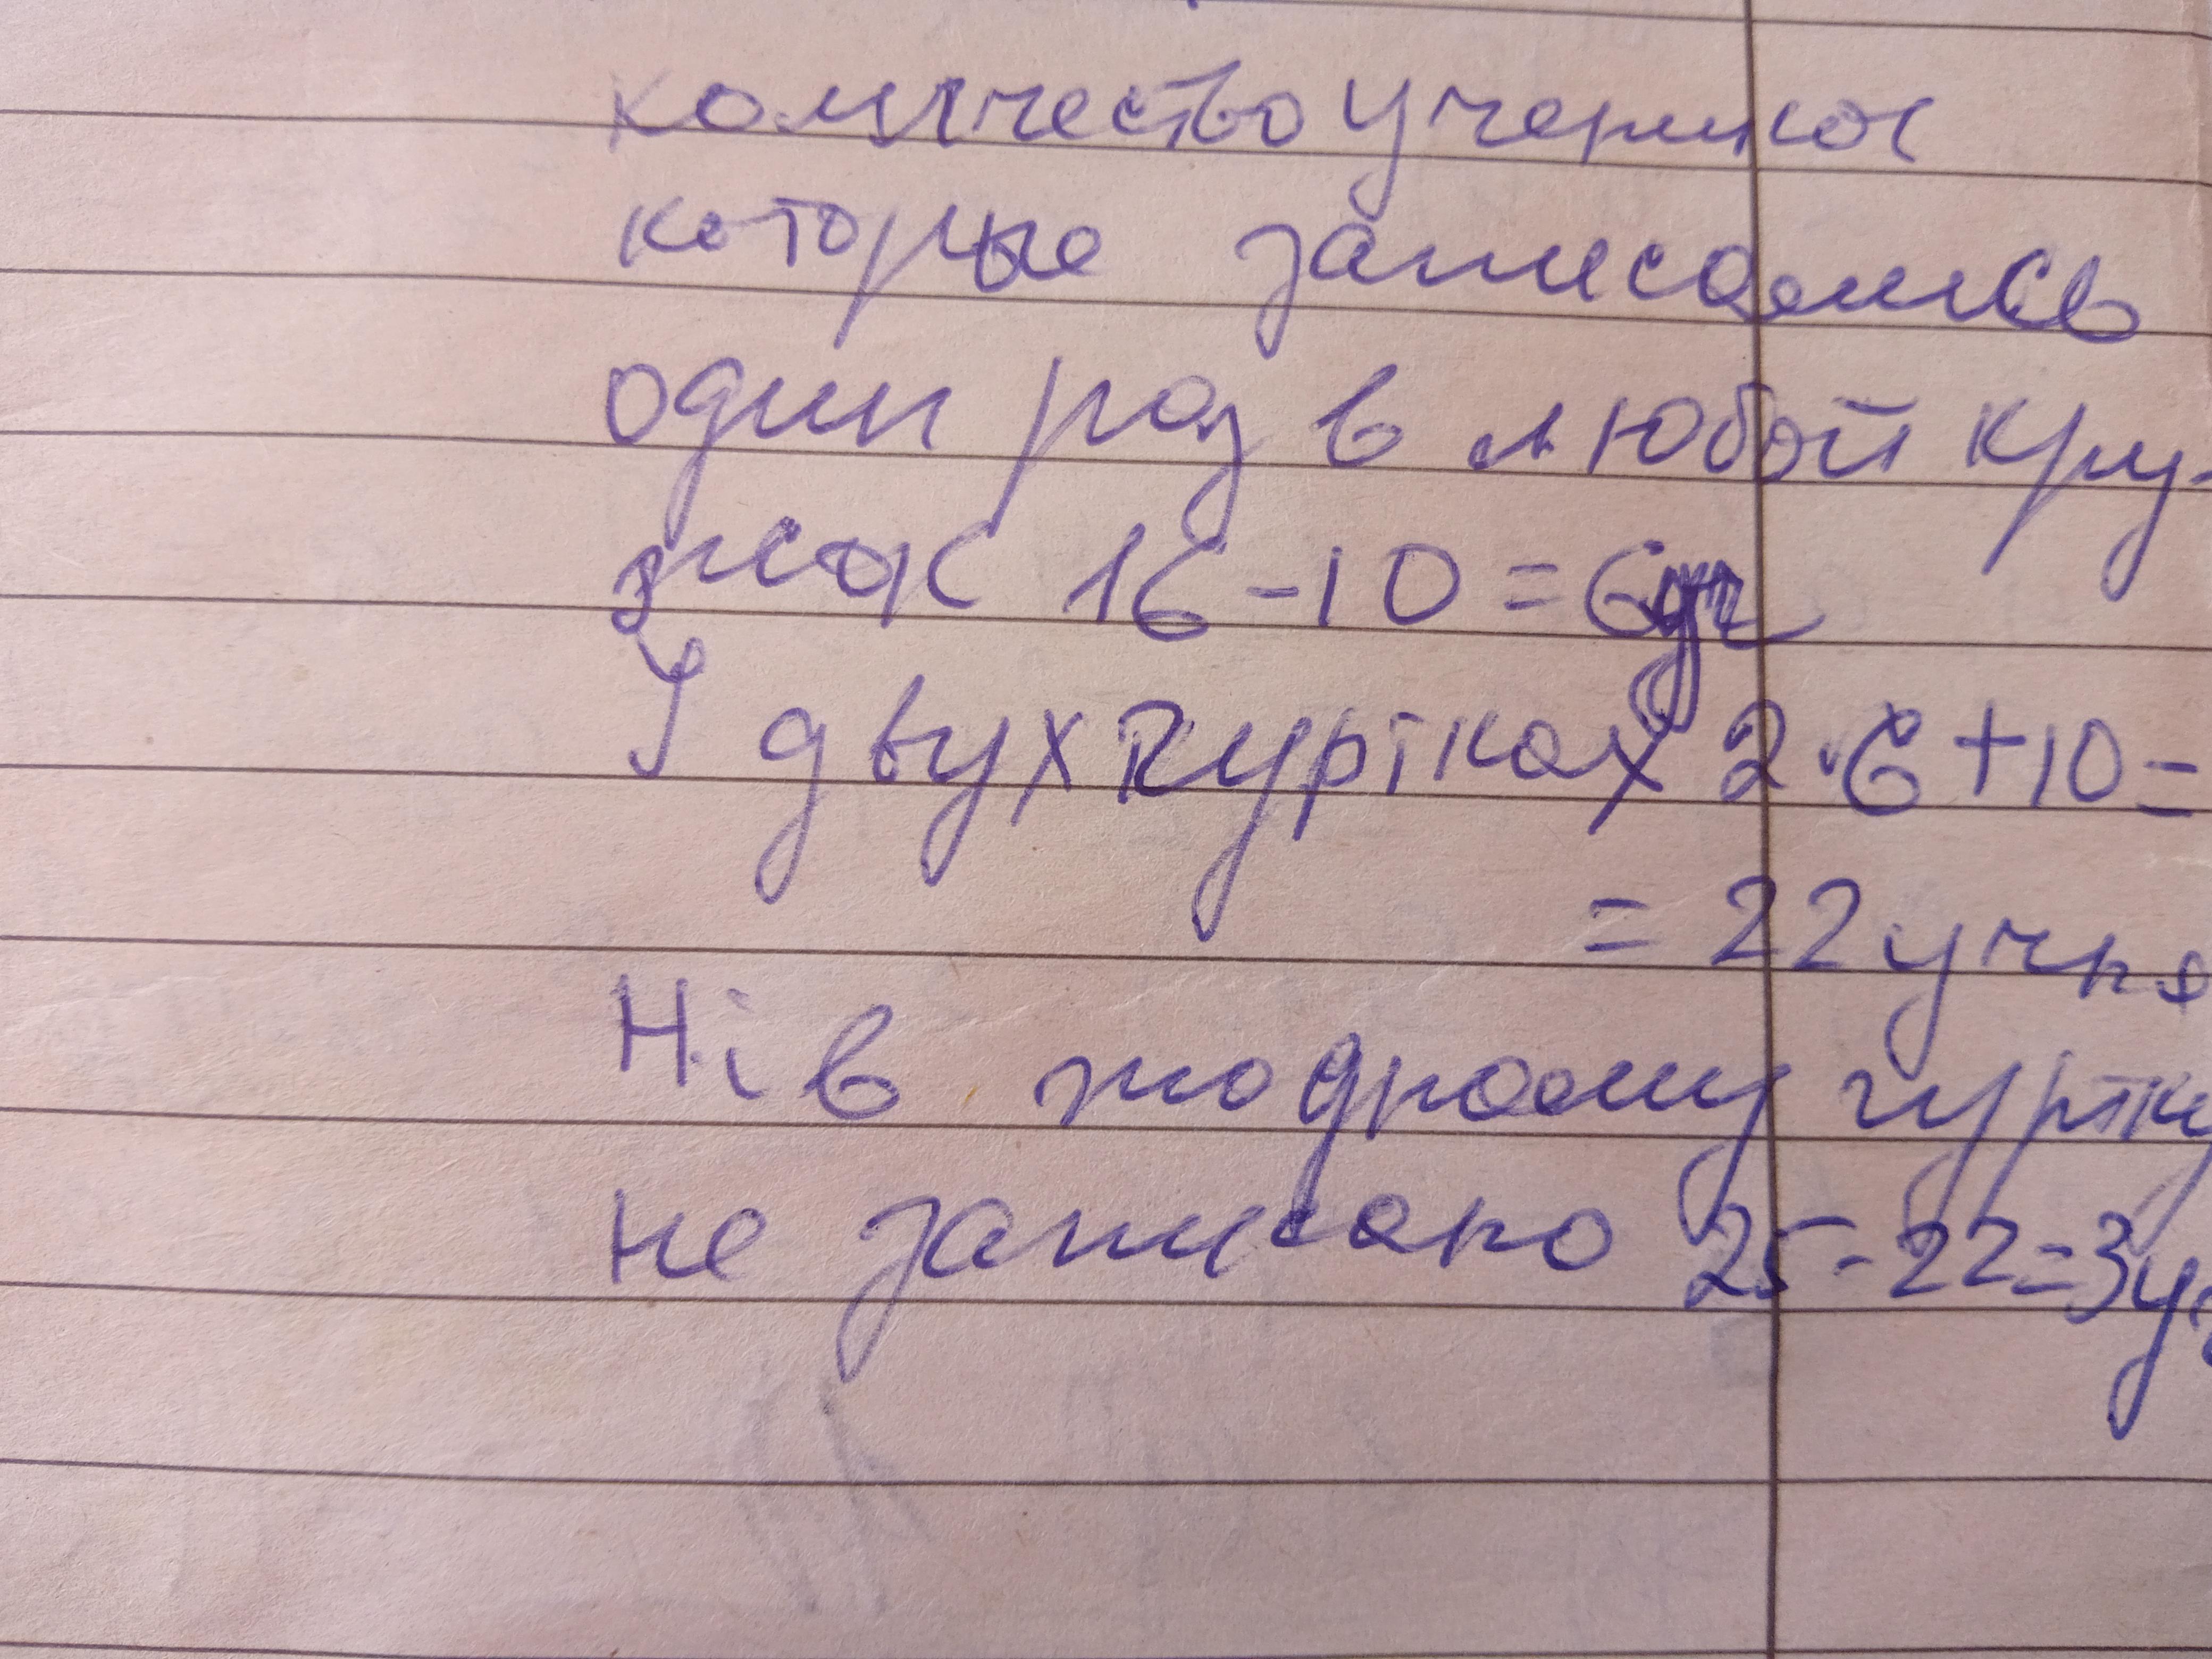 количество ученикос
которые записались
один раз в любой кру-
жок 16-10=6уч
У двух гуртках 2·6+10=
=22учня
Ні в жодному гуртку
не записано 25-22=3уч